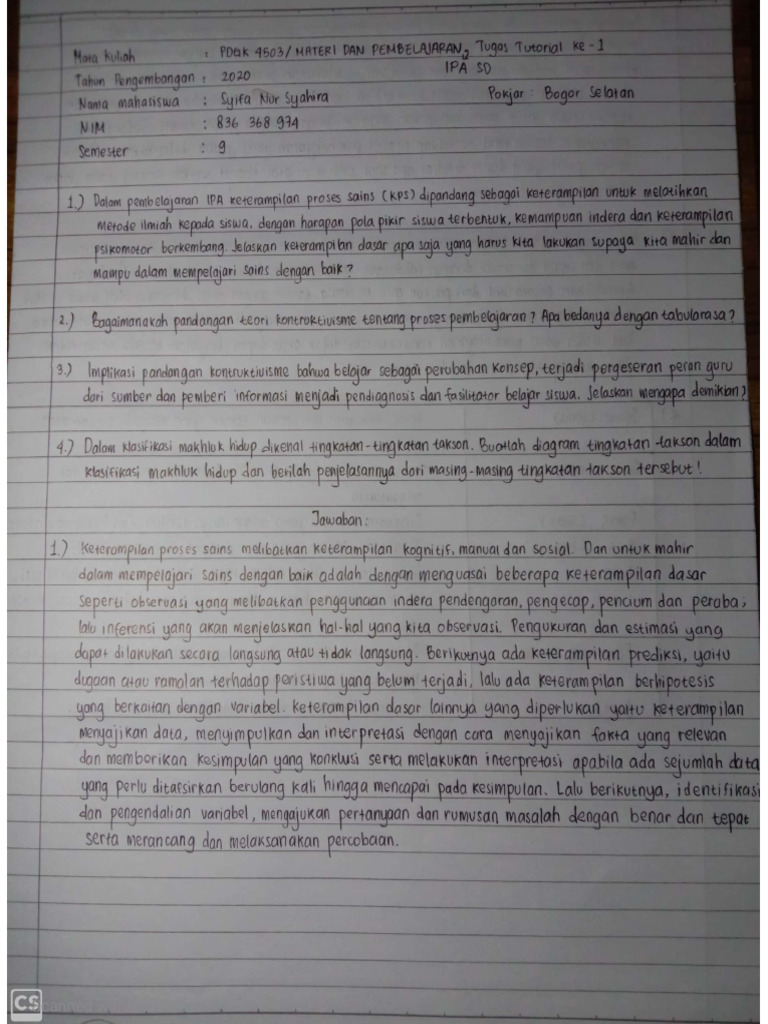 Mata Kuliah : PDGK 4503/ MATERI DAN PEMBELAJARAN, Tugas Tutorial ke-1
IPA SD
Tahun Pengembangan : 2020
Nama mahasiswa : Syifa Nur Syahira Pokjar : Bogor Selatan
NIM : 836 368 974
Semester : 9
1.) Dalam pembelajaran IPA keterampilan proses sains (KPS) dipandang sebagai keterampilan untuk melatihkan
metode ilmiah kepada siswa, dengan harapan pola pikir siswa terbentuk, kemampuan indera dan keterampilan
psikomotor berkembang. Jelaskan keterampilan dasar apa saja yang harus kita lakukan supaya kita mahir dan
mampu dalam mempelajari sains dengan baik?
2.) Bagaimanakah pandangan teori kontruktivisme tentang proses pembelajaran? Apa bedanya dengan tabularasa?
3.) Implikasi pandangan kontruktivisme bahwa belajar sebagai perubahan konsep, terjadi pergeseran peran guru
dari sumber dan pemberi informasi menjadi pendiagnosis dan fasilitator belajar siswa. Jelaskan mengapa demikian?
4.) Dalam klasifikasi makhluk hidup dikenal tingkatan-tingkatan takson. Buatlah diagram tingkatan-takson dalam
klasifikasi makhluk hidup dan berilah penjelasannya dari masing-masing tingkatan takson tersebut!
Jawaban:
1.) Keterampilan proses sains melibatkan keterampilan kognitif, manual dan sosial. Dan untuk mahir
dalam mempelajari sains dengan baik adalah dengan menguasai beberapa keterampilan dasar
seperti observasi yang melibatkan penggunaan indera pendengaran, pengecap, pencium dan peraba;
lalu inferensi yang akan menjelaskan hal-hal yang kita observasi. Pengukuran dan estimasi yang
dapat dilakukan secara langsung atau tidak langsung. Berikutnya ada keterampilan prediksi, yaitu
dugaan atau ramalan terhadap peristiwa yang belum terjadi, lalu ada keterampilan berhipotesis
yang berkaitan dengan variabel. keterampilan dasar lainnya yang diperlukan yaitu keterampilan
menyajikan data, menyimpulkan dan interpretasi dengan cara menyajikan fakta yang relevan
dan memberikan kesimpulan yang konklusi serta melakukan interpretasi apabila ada sejumlah data
yang perlu ditafsirkan berulang kali hingga mencapai pada kesimpulan. Lalu berikutnya, identifikasi
dan pengendalian variabel, mengajukan pertanyaan dan rumusan masalah dengan benar dan tepat
serta merancang dan melaksanakan percobaan.
CS